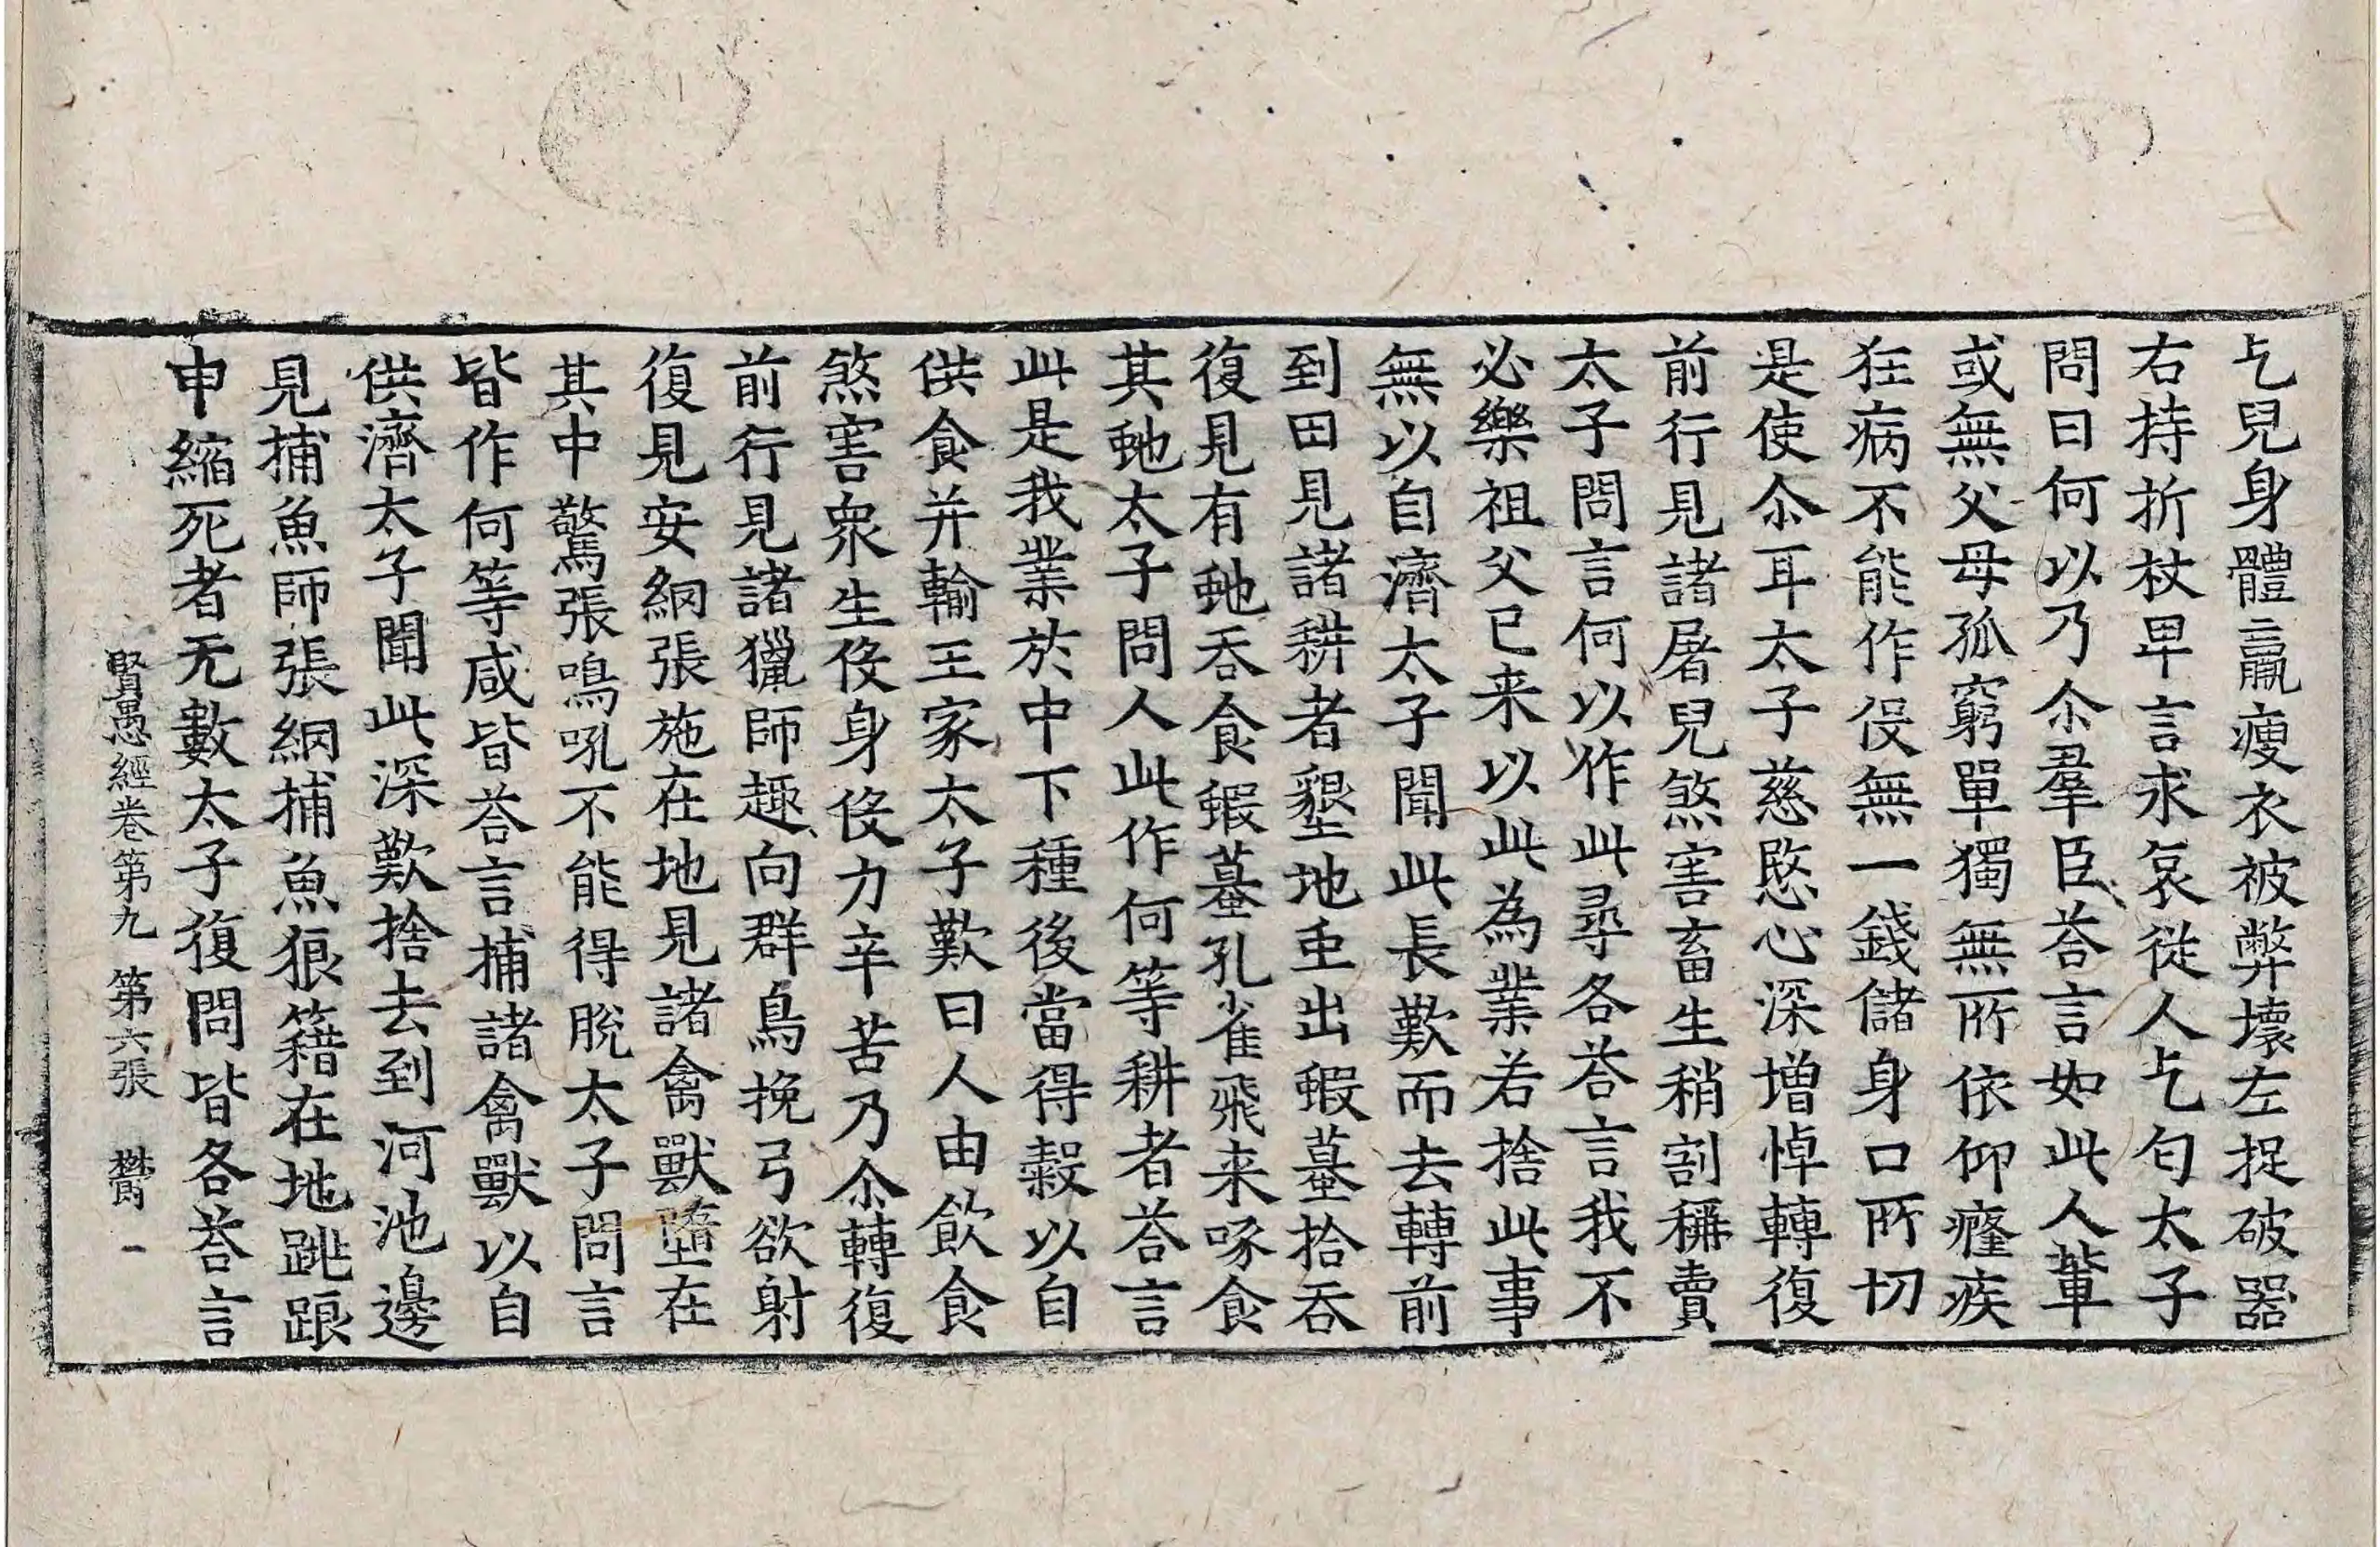 乞兒身體羸瘦衣被弊壞左捉破器
右持折杖卑言求哀從人乞匂太子
問曰何以乃尒羣臣荅言如此人輩
或無父母孤窮單獨無所依仰癃疾
狂病不能作役無一錢儲身口所切
是使尒耳太子慈愍心深增悼轉復
前行見諸屠兒煞害畜生稍割稱賣
太子問言何以作此尋各荅言我不
必樂祖父已来以此為業若捨此事
無以自濟太子聞此長歎而去轉前
到田見諸耕者墾地虫出蝦蟇拾吞
復見有虵吞食蝦蟇孔雀飛来啄食
其虵太子問人此作何等耕者荅言
此是我業於中下種後當得穀以自
供食并輸王家太子歎曰人由飲食
煞害衆生役身役力辛苦乃尒轉復
前行見諸獵師趣向群鳥挽弓欲射
復見安網張施在地見諸禽獸墮在
其中驚張鳴吼不能得脫太子問言
皆作何等咸皆荅言捕諸禽獸以自
供濟太子聞此深歎捨去到河池邊
見捕魚師張網捕魚狼籍在地跳踉
申縮死者无數太子復問皆各荅言
賢愚經卷第九 第六張 欝